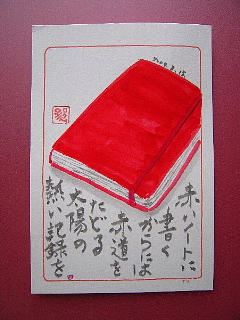 赤いノートに
書くからには
赤道を
たどる
太陽の
熱い記録を。